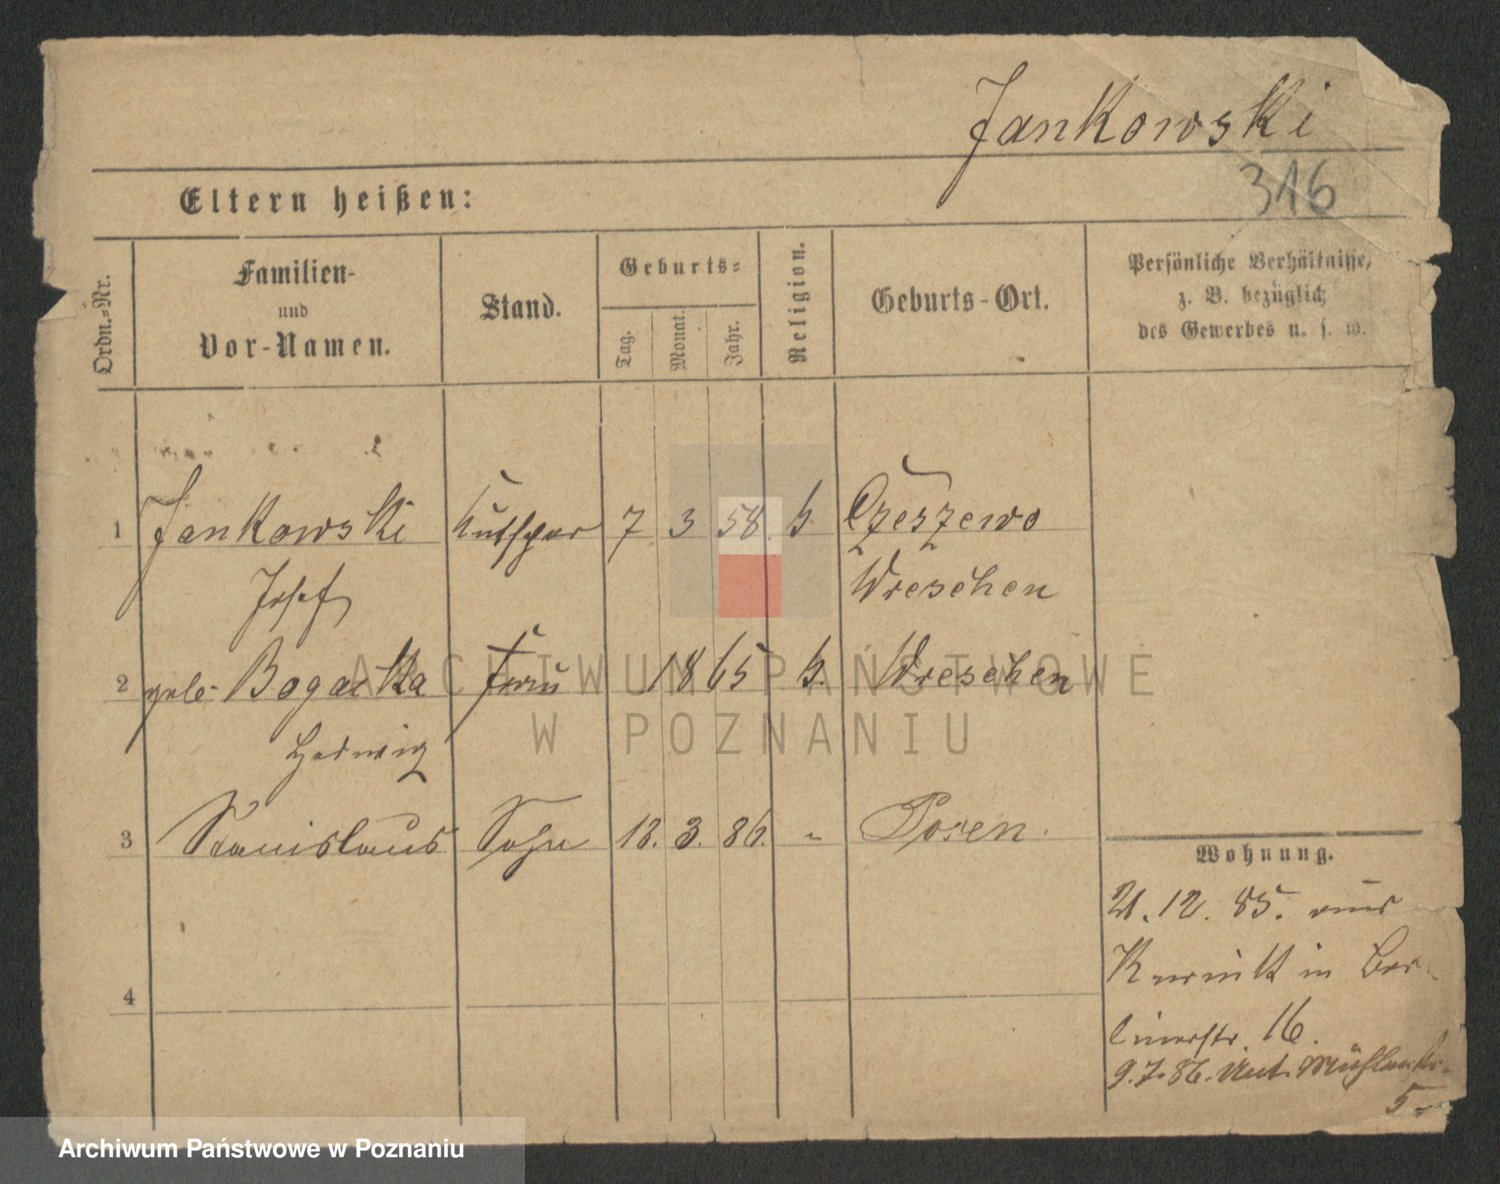 Jankowski
316
Eltern heißen:
Ordn.-Nr.
Familien-
und
Vor-Namen.
Stand.
Geburts-
Tag.
Monat.
Jahr.
Religion.
Geburts-Ort.
Persönliche Verhältnisse,
z. B. bezüglich
des Gewerbes u. s. w.
1 Jankowski Kutscher 7 3 58. k. Czeszewo
Josef Wreschen
2 geb. Bogacka Frau 1865 k. Wreschen
Hedwig
3 Stanislaus Sohn 18. 3. 86. " Posen.
4
Wohnung.
21. 12. 85. aus
Kurnik in Ber-
linerstr. 16.
9.7.86. Unt. Mühlenstr.
5
ARCHIWUM PAŃSTWOWE
W POZNANIU
Archiwum Państwowe w Poznaniu